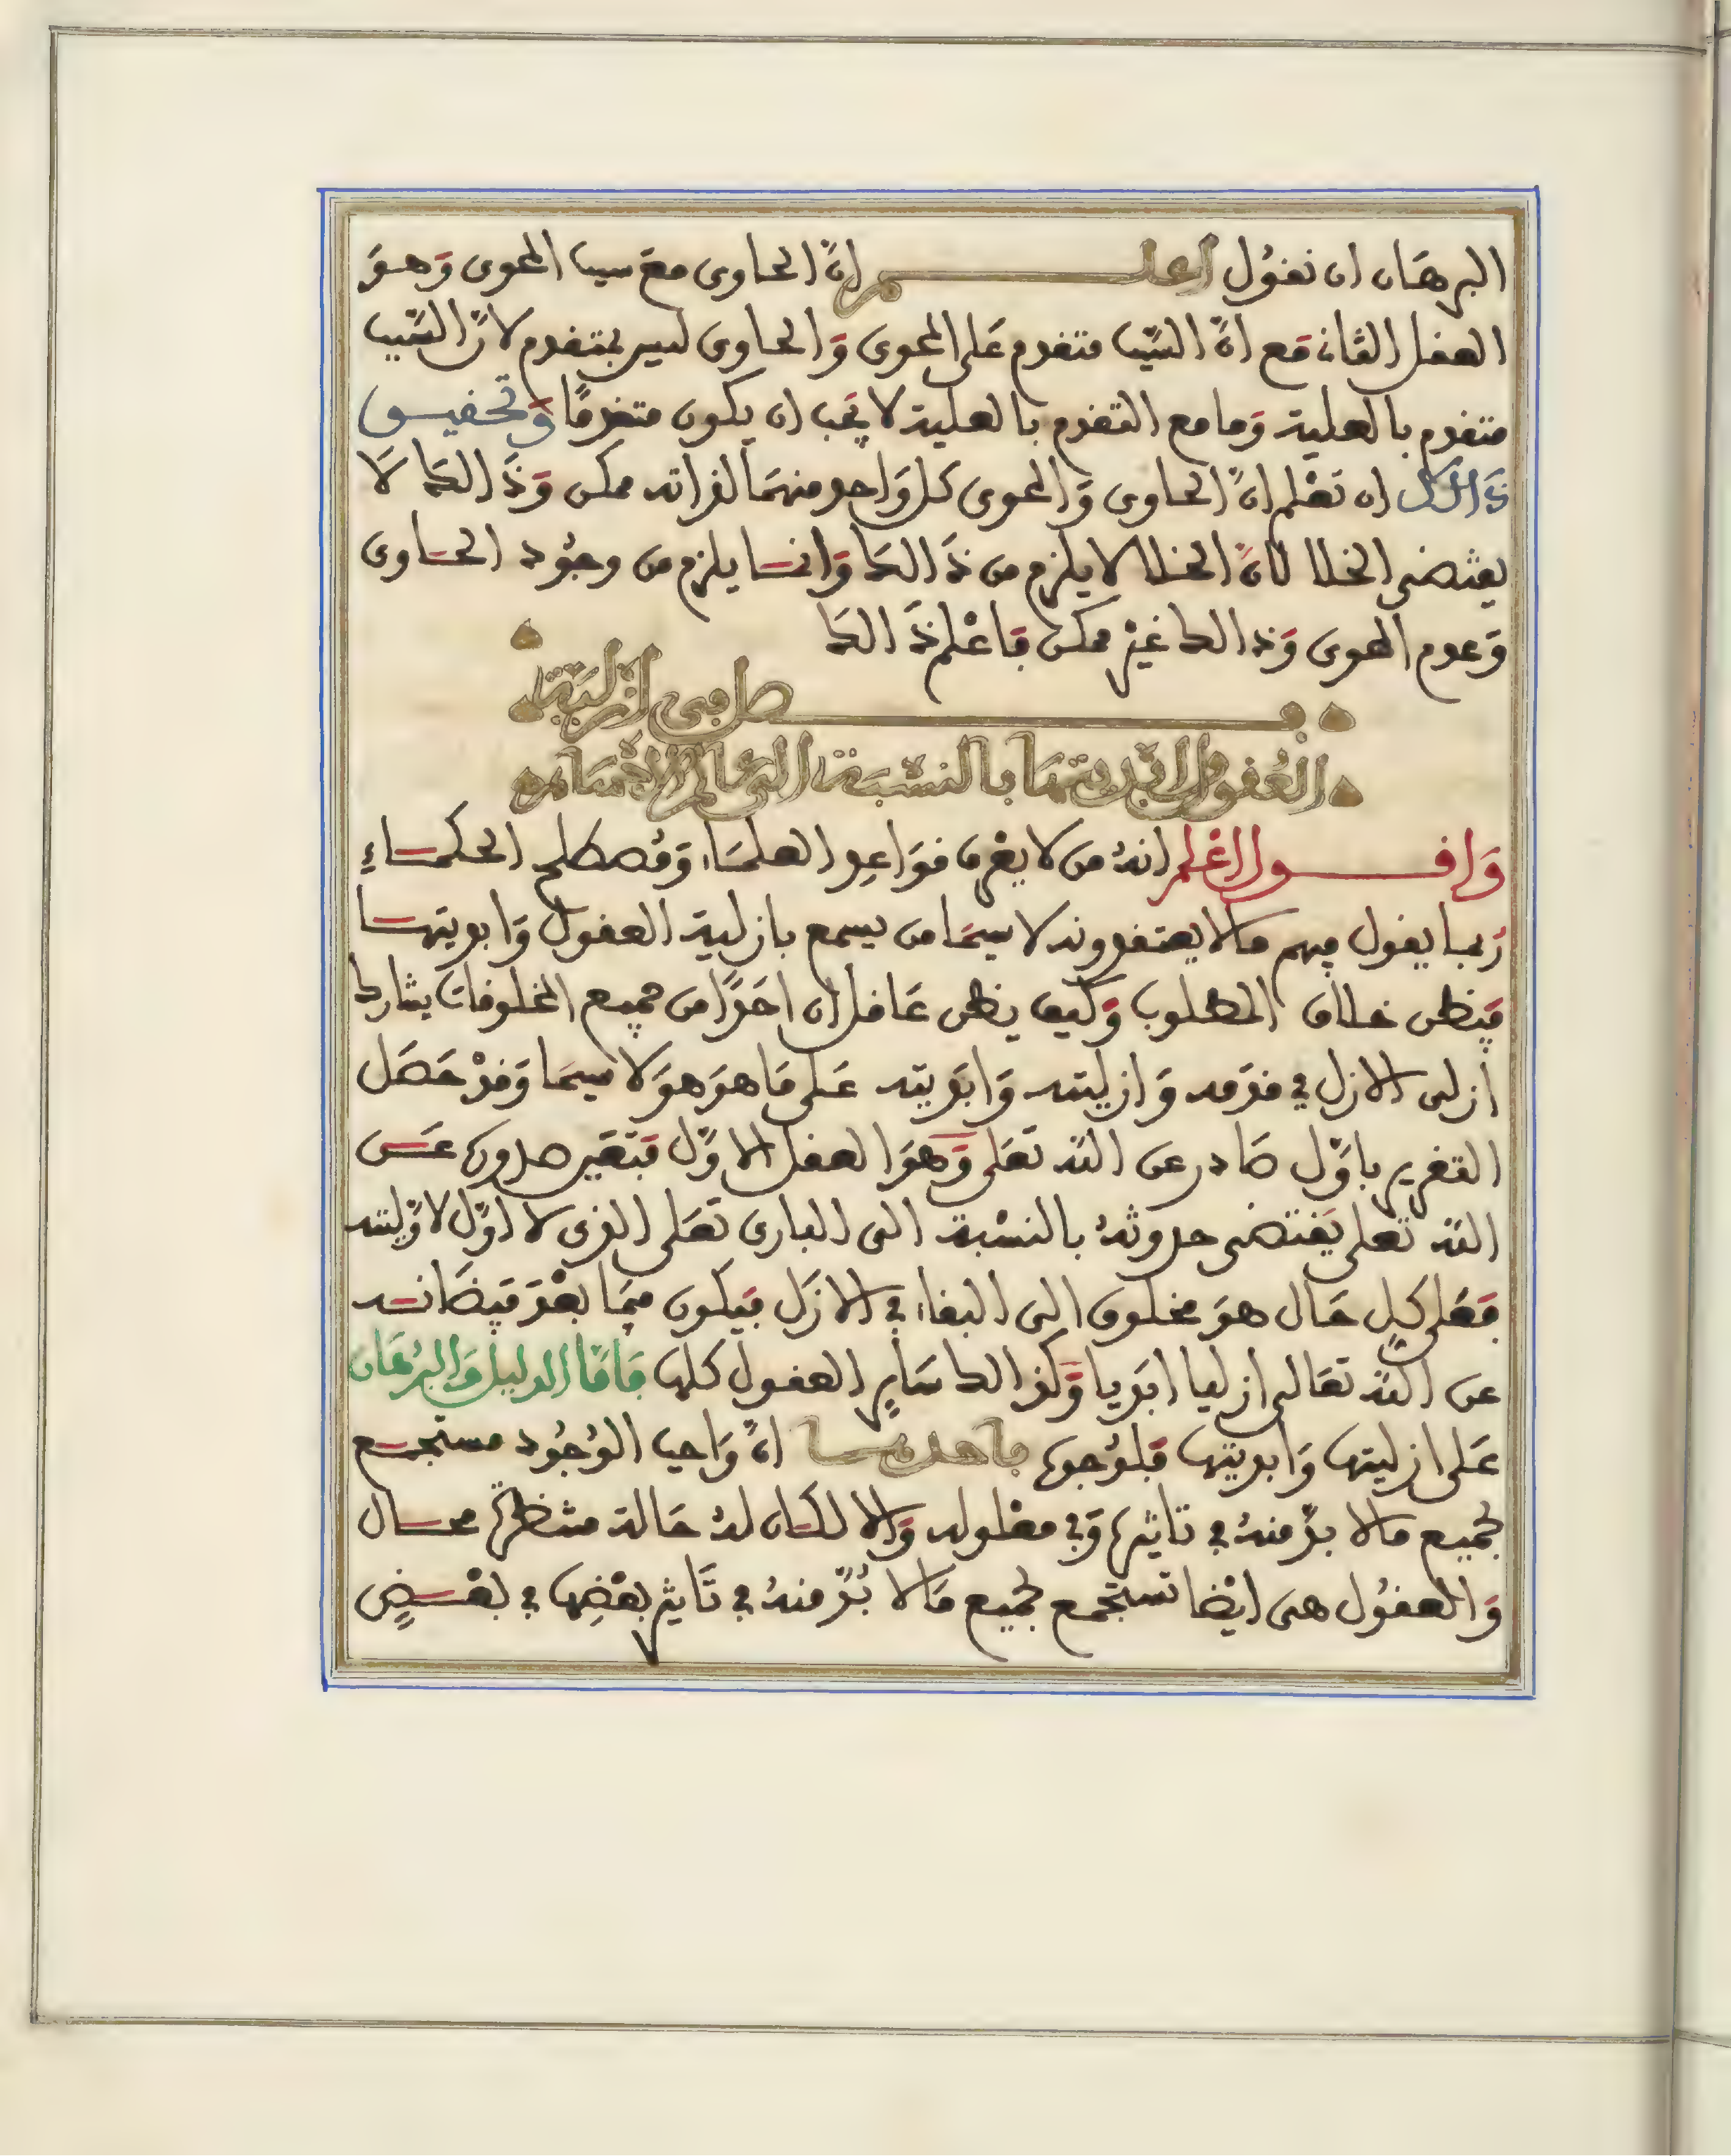 البرهان ان نقول اعلم انّ الحاوى معَ سبب المحوى وَهوَ
العقل الثانى مَع انّ السّبب متقدم عَلى المحوى وَالحاوى ليس بمتقدم لانّ السّبب
متقدم بالعلية وَما مع التقدم بالعلية لا يجَب ان يكون متقدمًا وَتحقيق
ذَالك ان تعْلم انّ الحاوى وَالمحوى كل وَاحد منهمَا لذاته ممكن وَذَالك لَا
يقتضى الخلا لانّ الخلا لا يلزم من ذَالكَ وَانما يلزم من وجُود الحاوى
وَعدم المحوى وَذالك غيرْ ممكن فاعْلم ذَالكَ
فصل فى ازليّة
العُقول وابديتها بالنسْبَة الى عالم الاجسام
وَاقول اعْلم انهُ من لا يعْرف قوَاعد العلمَاء وَمُصطلح الحكماءِ
رُبما يقول فيهم مالا يعتقدونه لا سيمَا من يسمع بازلية العقول وَابديتها
فيَظن خلاف المطلوب وَكيف يظن عَاقل ان احَدًا من جميع المخلوقات يشارك
ازلى الازل في قدَمه وَازليته وَابَديته عَلى مَا هوَ هوَ لا سيمَا وَقدْ حَصَل
التقرير باوّل صَادر عن اللّه تعَلى وَهوَ العقل الاوّل فبَتقَدير صدوره عَن
اللّه تعلى يَقتضى حدوثهُ بالنسْبة الى البارى تعَلى الذى لا اوّل لاوّليته
فعَلى كلِ حَال هوَ مخلوق الى البقاء في الازَل فيَكون فيمَا بعْدَ فيَضَانه
عن اللّه تعَالى ازليا ابَديا وَكذالك سَايرِ العقول كلها فَامّا الدليل وَالبرُهَان
عَلى ازليتها وَابديتها فلِوُجوه احدها انّ وَاجب الوُجُود مستجمع
لجميع مالا بدّ منهُ في تاثيره وَفي معْلوله وَالا لكان لهُ حَالة منتظرة محال
وَالعقُول هى ايْضا تستجمع لجميع مَالا بُدّ منهُ في تَاثير بعْضِها في بعْضٍ